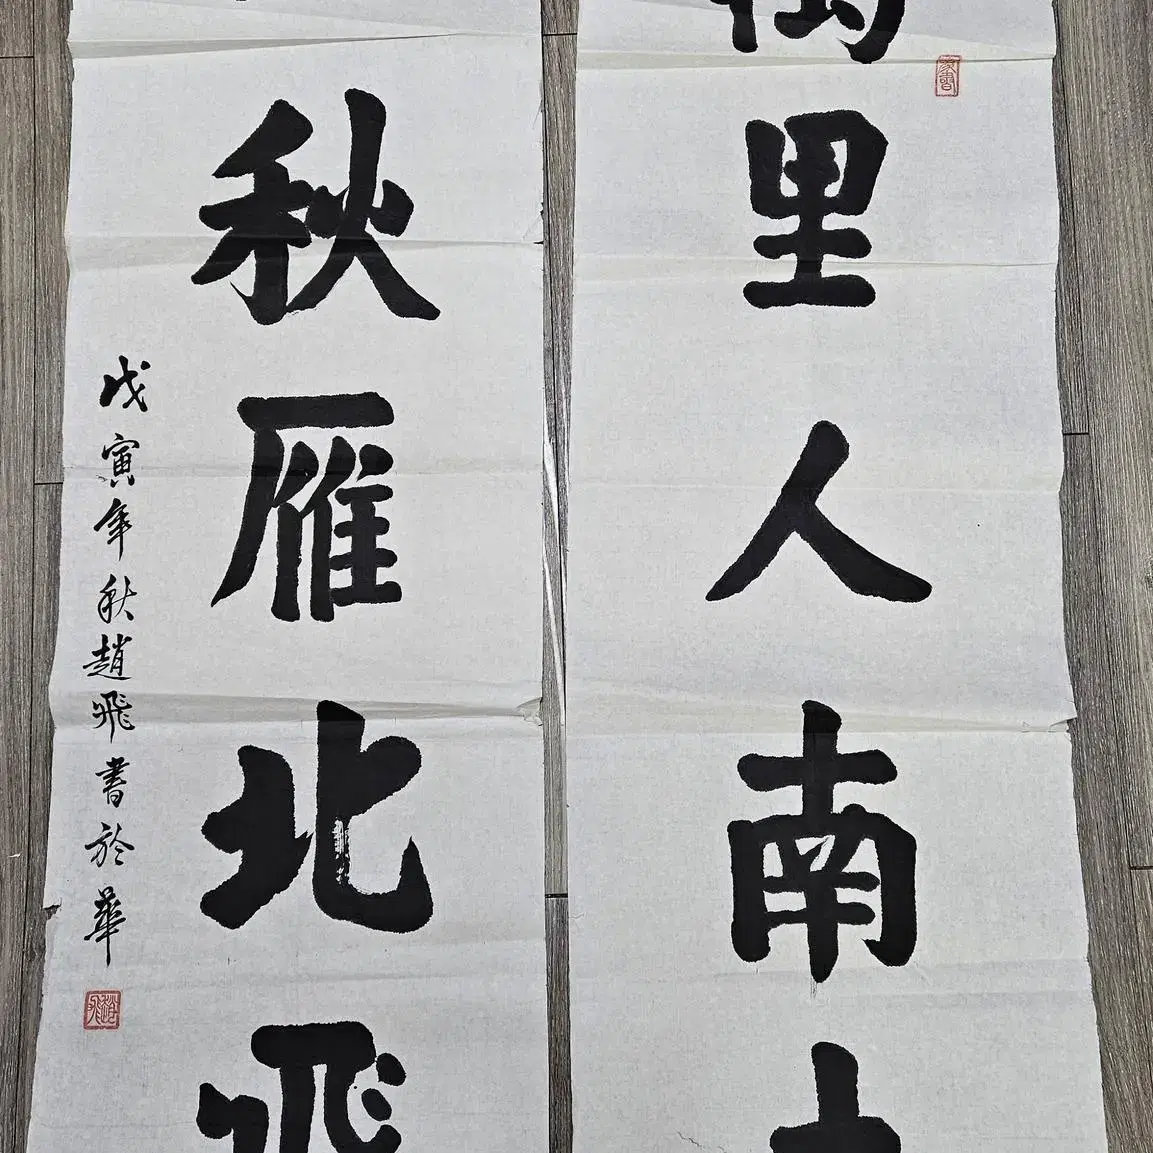 萬里人南
秋雁北飛
戊寅年秋趙飛書於華